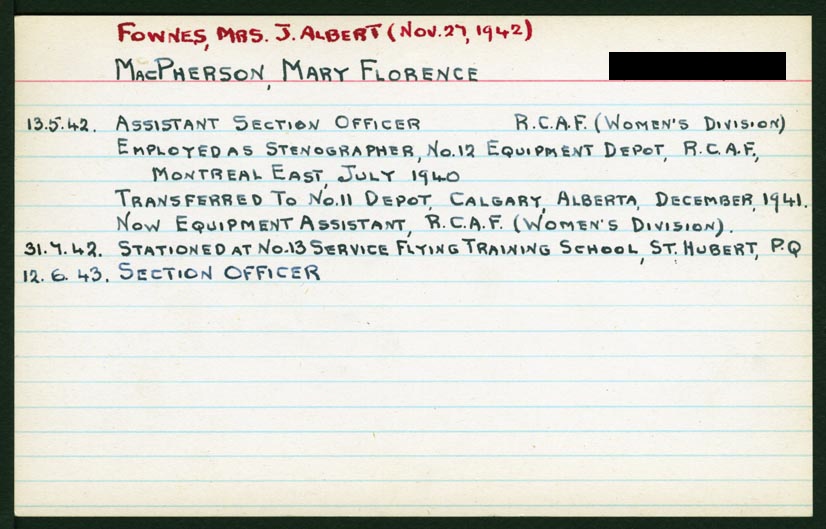 FOWNES, MRS. J. ALBERT (NOV. 27, 1942)
MACPHERSON, MARY FLORENCE
13.5.42. ASSISTANT SECTION OFFICER R.C.A.F. (WOMEN'S DIVISION)
EMPLOYED AS STENOGRAPHER, NO.12 EQUIPMENT DEPOT, R.C.A.F.,
MONTREAL EAST, JULY 1940
TRANSFERRED TO NO.11 DEPOT, CALGARY, ALBERTA, DECEMBER, 1941.
NOW EQUIPMENT ASSISTANT, R.C.A.F. (WOMEN'S DIVISION).
31.7.42. STATIONED AT NO.13 SERVICE FLYING TRAINING SCHOOL, ST. HUBERT, P.Q
12.6.43. SECTION OFFICER